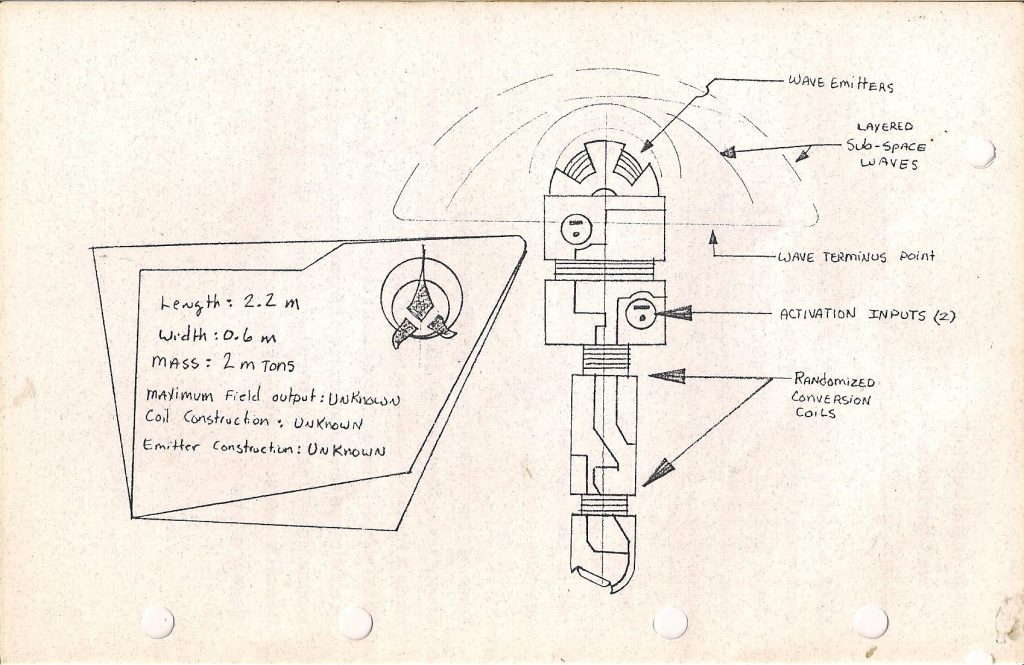 WAVE EMITTERS
LAYERED
SUB-SPACE
WAVES
WAVE TERMINUS POINT
ACTIVATION INPUTS (2)
RANDOMIZED
CONVERSION
COILS
Length: 2.2 m
Width: 0.6 m
MASS: 2 m TONS
MAXIMUM Field output: UNKNOWN
Coil Construction: UNKNOWN
Emitter Construction: UNKNOWN